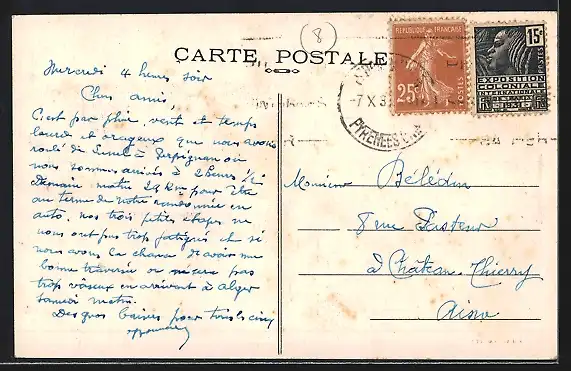 (8)
CARTE POSTALE
REPUBLIQUE FRANÇAISE
25c
POSTES
15c
POSTES
EXPOSITION
COLONIALE
INTERNATIONALE
7 X 31
PYRENEES
Mercredi 4 heures soir
Chers amis,
C'est par pluie, vent et temps
lourd et orageux que nous avons
roulé de Lunel à Perpignan où
nous sommes arrivés à 2 heures
Demain matin 29 Km pour être
au terme de notre randonnée en
auto. Nos trois petites étapes ne
nous ont pas trop fatigués et si
nous avons la chance d'avoir une
bonne traversée on n'sera pas
trop vaseux en arrivant à Alger
samedi matin.
Des gros baisers pour tous les cinq
Monsieur Bélédin
8 rue Pasteur
à Château-Thierry
Aisne